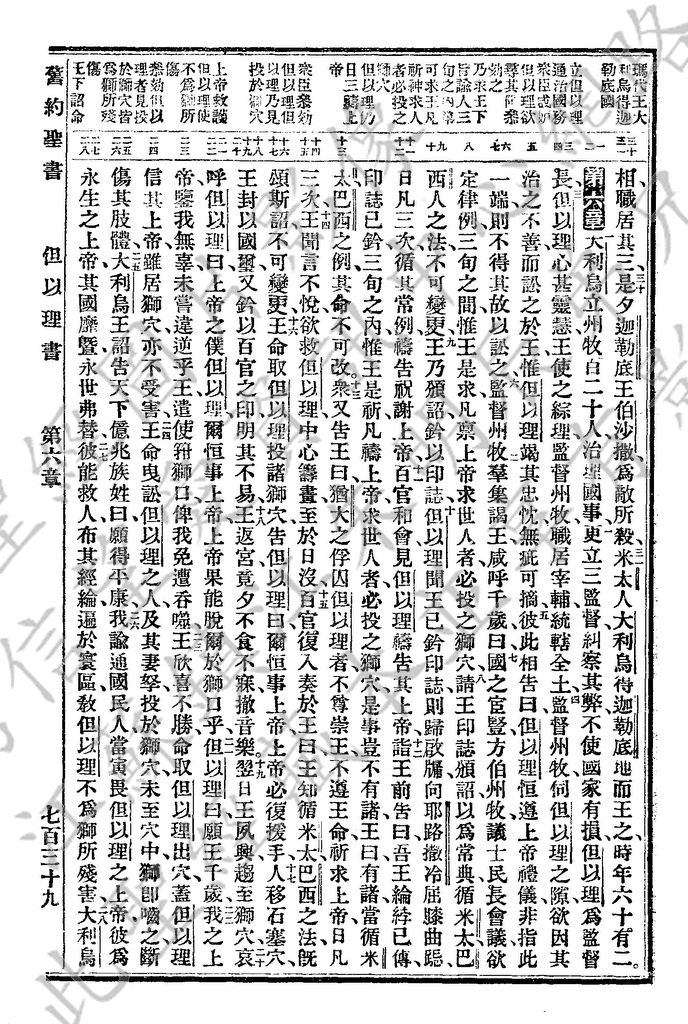 瑪代王大
利烏得迦
勒底國
立但以理
通治國務
衆臣嫉妒
但以理欲
尋其隙
乃求王下
旨諭人三
旬之內第
可求王凡
祈神求人
者必投之
獅穴
但以理仍
日三禱上
帝
衆臣
但以理但
以理乃見
投於獅穴
上帝救護
但以理使
不爲獅所
傷
理者見投
於獅穴皆
爲獅所殘
傷
王下詔命
相職居其三是夕迦勒底王伯沙撒爲敵所殺米太人大利烏得迦勒底地而王之時年六十有二
第六章 大利烏立州牧百二十人治理國事更立三監督糾察其弊不使國家有損但以理爲監督
長但以理心甚靈慧王使之綜理監督州牧職居宰輔統轄全土監督州牧伺但以理之隙欲因其
治之不善而訟之於王惟但以理竭其忠忱無疵可摘彼此相告曰但以理恒遵上帝禮儀非指此
一端則不得其故以訟之監督州牧羣集謁王咸呼千歲曰國之宦豎方伯州牧議士民長會議欲
定律例三旬之間惟王是求凡禀上帝求世人者必投之獅穴請王印誌頒詔以爲常典循米太巴
西人之法不可變更王乃頒詔鈐以印誌但以理聞王已鈐印誌則歸啟牖向耶路撒冷屈膝曲跽
日凡三次循其常例禱告祝謝上帝百官和會見但以理禱告其上帝詣王前告曰吾王綸綍已傳
印誌已鈐三旬之內惟王是祈凡禱上帝求世人者必投之獅穴是事豈不有諸王曰有諸當循米
太巴西之例其命不可改衆又告王曰猶大之俘囚但以理者不尊崇王不遵王命祈求上帝日凡
三次王聞言不悅欲救但以理中心籌畫至於日沒百官復入奏於王曰王知循米太巴西之法旣
頒斯詔不可變更王命取但以理投諸獅穴告但以理曰爾恒事上帝上帝必復援手人移石塞穴
王封以國璽又鈐以百官之印明其不易王返宮竟夕不食不寐撤音樂翌日王夙興趨至獅穴哀
呼但以理曰上帝之僕但以理爾恒事上帝上帝果能脫爾於獅口乎但以理曰願王千歲我之上
帝鑒我無辜未嘗違逆乎王遣使箝獅口俾我免遭吞噬王欣喜不勝命取但以理出穴蓋但以理
信其上帝雖居獅穴亦不受害王命曳訟但以理之人及其妻孥投於獅穴未至穴中獅卽嚙之斷
傷其肢體大利烏王詔告天下億兆族姓曰願得平康我諭通國民人當寅畏但以理之上帝彼爲
永生之上帝其國靡曁永世弗替彼能救人布其經綸遍於寰區救但以理不爲獅所殘害大利烏
舊約聖書 但以理書 第六章 七百三十九